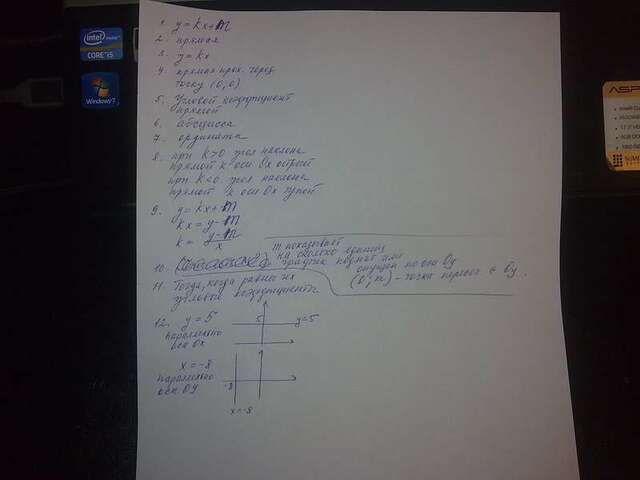 1. y = kx+m
2. прямая
3. y = kx
4. прямая прох. через
точку (0; 0)
5. Угловой коэффициент
прямой
6. абсцисса
7. ордината
8. при k>0 угол наклона
прямой к оси Ox острый
при k<0 угол наклона
прямой к оси Ox тупой
9. y = kx+m
kx = y-m
k = y-m
x
10.
m показывает
на сколько единиц
график поднят или
опущен по оси Oy
(0; m) - точка пересеч с Oy.
11. Тогда, когда равны их
угловые коэффициенты
12. y = 5
параллельно
оси Ox
5
y=5
x = -8
параллельно
оси Oy
-8
x=-8
intel
CORE i5
Windows 7
ASP